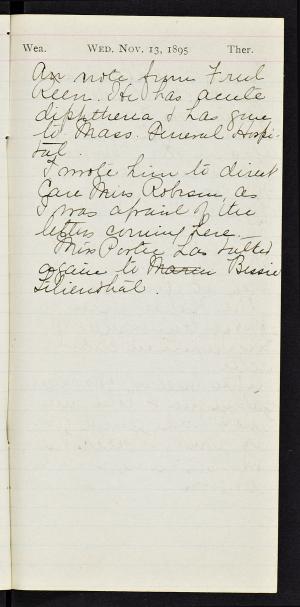 Wea. WED. NOV. 13, 1895 Ther.
An note from Fred
Keen. He has acute
diphtheria & has gone
to Mass. General Hospi-
tal.
I wrote him to direct
Care Miss Robson, as
I was afraid of the
letters coming here.
Miss Porter has talked
again to Bessie
Lilienthal.